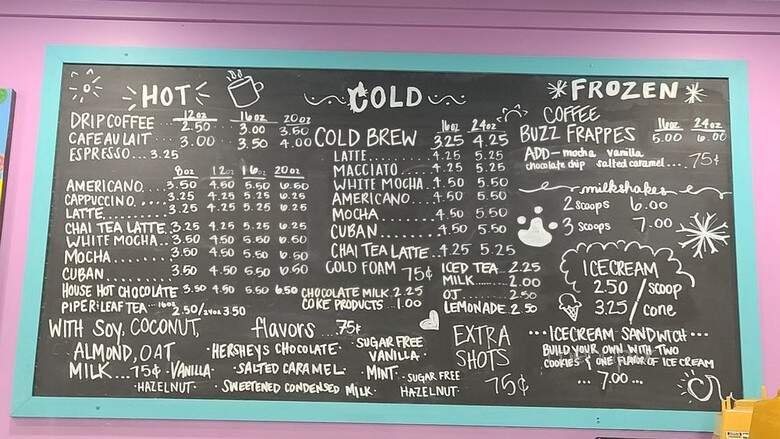 HOT
12oz 16oz 20oz
DRIP COFFEE 2.50 3.00 3.50
CAFE AU LAIT 3.00 3.50 4.00
ESPRESSO... 3.25
8oz 12oz 16oz 20oz
AMERICANO. 3.50 4.50 5.50 6.50
CAPPUCCINO.... 3.25 4.25 5.25 6.25
LATTE.......... 3.25 4.25 5.25 6.25
CHAI TEA LATTE. 3.25 4.25 5.25 6.25
WHITE MOCHA.. 3.50 4.50 5.50 6.50
MOCHA........ 3.50 4.50 5.50 6.50
CUBAN......... 3.50 4.50 5.50 6.50
HOUSE HOT CHOCOLATE 3.50 4.50 5.50 6.50
PIPER & LEAF TEA... 16oz 2.50/24oz 3.50
COLD
16oz 24oz
COLD BREW 3.25 4.25
LATTE......... 4.25 5.25
MACCIATO.... 4.25 5.25
WHITE MOCHA.. 4.50 5.50
AMERICANO.... 4.50 5.50
MOCHA......... 4.50 5.50
CUBAN......... 4.50 5.50
CHAI TEA LATTE... 4.25 5.25
COLD FOAM 75¢
CHOCOLATE MILK. 2.25
COKE PRODUCTS. 1.00
ICED TEA.. 2.25
MILK....... 2.00
OJ......... 2.50
LEMONADE 2.50
FROZEN
COFFEE
BUZZ FRAPPES 16oz 24oz
5.00 6.00
ADD- mocha vanilla
chocolate chip salted caramel.... 75¢
milkshakes
2 SCOOPS 6.00
3 SCOOPS 7.00
ICE CREAM
2.50 / SCOOP
3.25 / cone
... ICECREAM SANDWICH...
BUILD YOUR OWN WITH TWO
COOKIES & ONE FLAVOR OF ICE CREAM
... 7.00 ...
WITH SOY, COCONUT,
ALMOND, OAT
MILK... 75¢
flavors ... 75¢
HERSHEYS CHOCOLATE.
VANILLA
SALTED CARAMEL.
HAZELNUT.
SWEETENED CONDENSED MILK.
SUGAR FREE
VANILLA.
MINT.
SUGAR FREE
HAZELNUT.
EXTRA
SHOTS
75¢